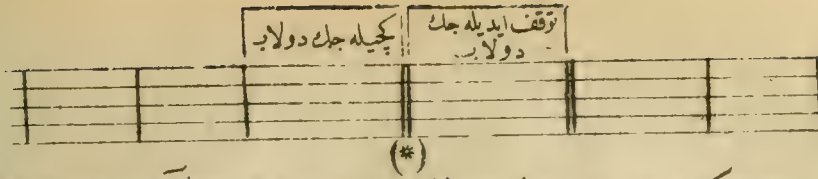 توقف ایدیله جك
دولاب
كچیله جك دولاب
(*)